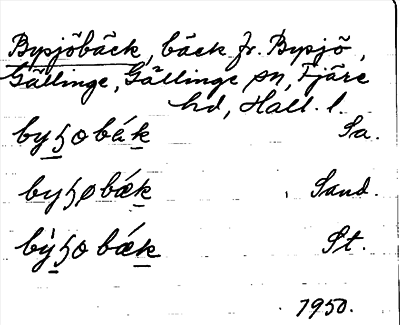 Bysjöbäck, bäck fr. Bysjö,
Gällinge, Gällinge sn, Fjäre
hd, Hall. l.
byɧobák Sa.
byɧøbæk Sand.
bỳɧobǽk St.
1950.